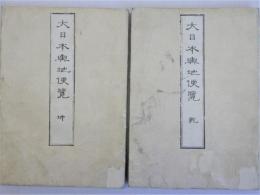 大日本輿地便覧 乾
大日本輿地便覧 坤